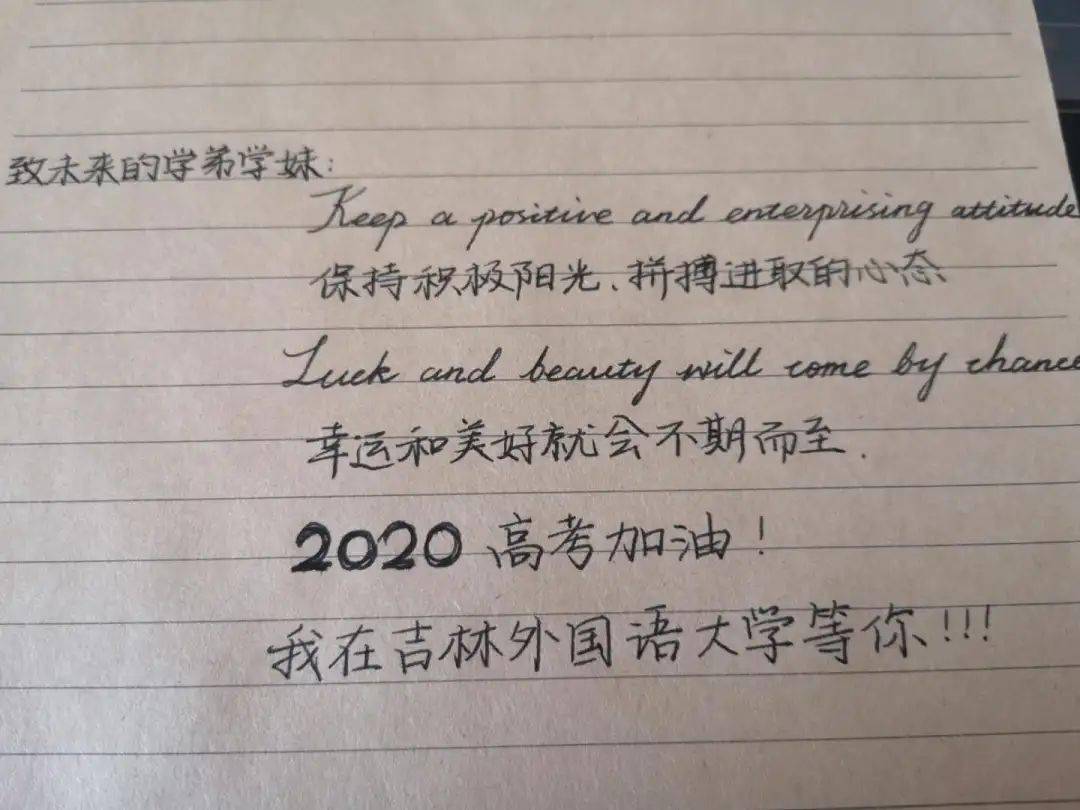 致未来的学弟学妹：
Keep a positive and enterprising attitude
保持积极阳光、拼搏进取的心态
Luck and beauty will come by chance
幸运和美好就会不期而至.
2020 高考加油！
我在吉林外国语大学等你!!!